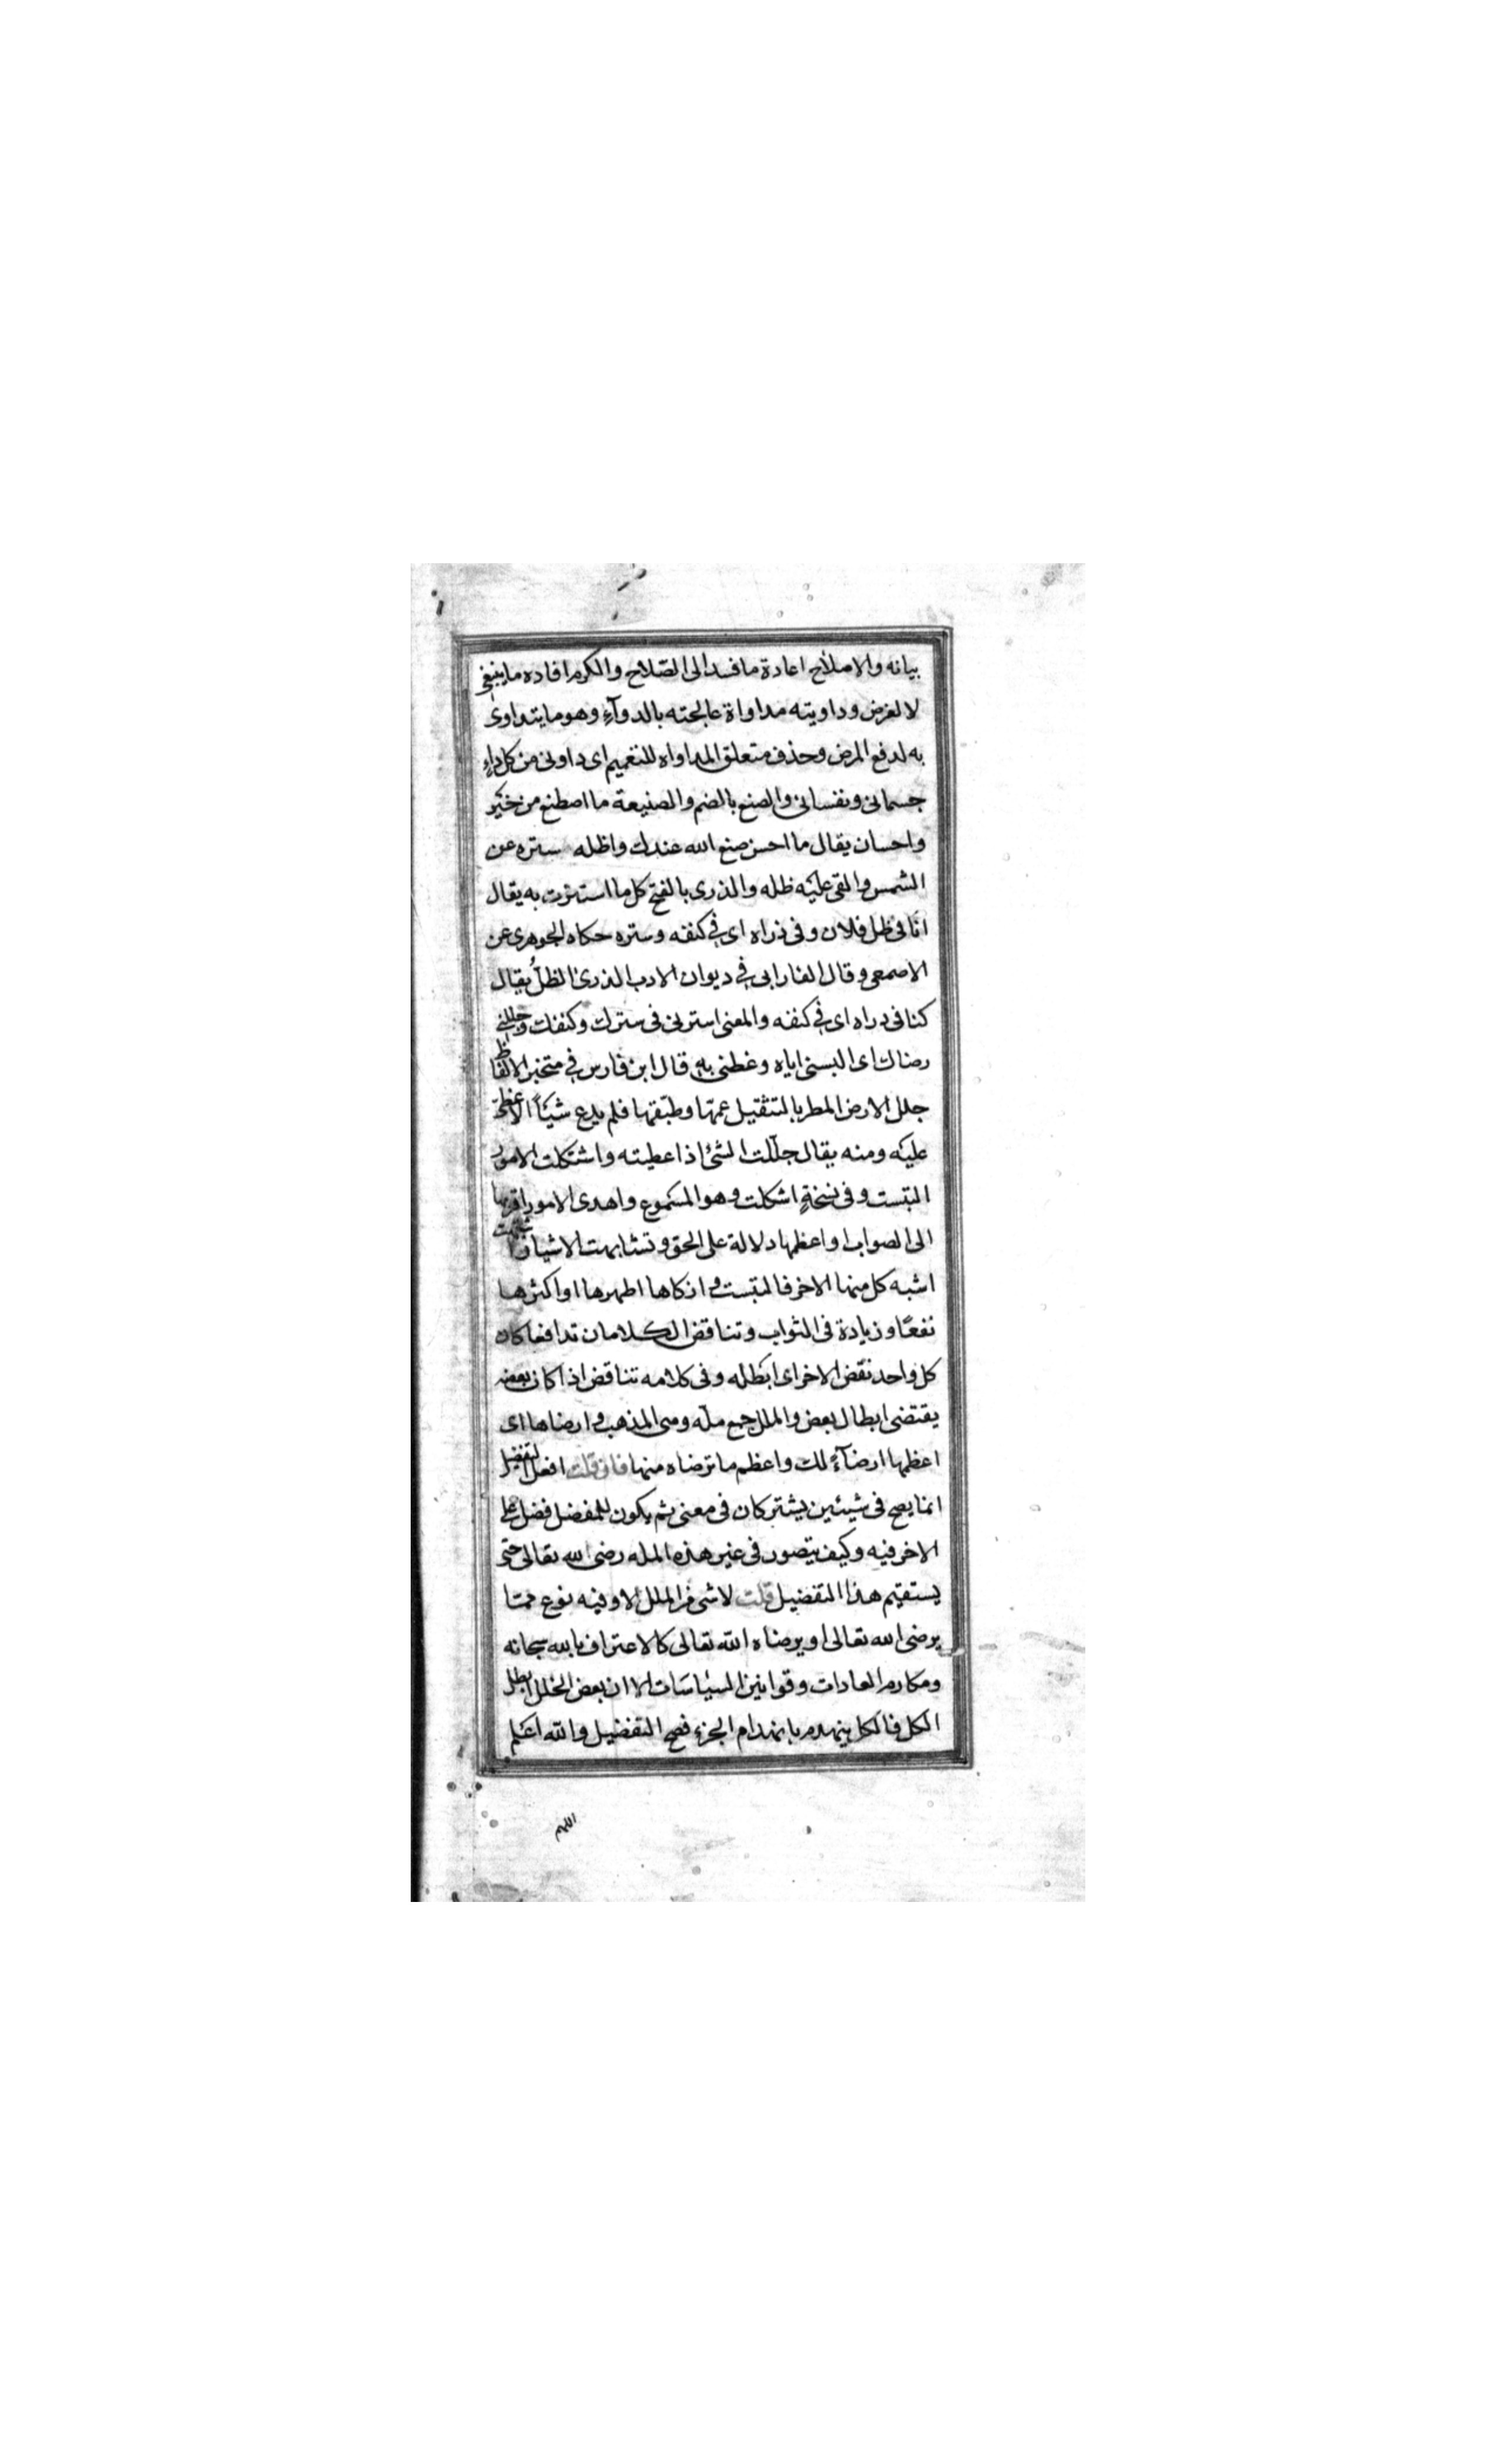 بيانه والاصلاح اعادة ما فسد الى الصّلاح والكرم افاده ما ينبغى
لا لغرض وداويته مداواة عالجته بالدوآء وهو ما يتداوى
به لدفع المرض وحذف متعلق المداواه للتعميم اى داونى من كل داء
جسمانى ونفسانى والصنع بالضم والصنيعة ما اصطنع من خير
واحسان يقال ما احسن صنع الله عندك واظله ستره عن
الشمس والقى عليه ظله والذرى بالفتح كل ما استترت به يقال
انا فى ظل فلان وفى ذراه اى فى كنفه وستره حكاه الجوهرى عن
الاصمعى وقال الفارابى فى ديوان الادب الذرى الظلّ يقال
كنا فى دراه اى فى كنفه والمعنى استرنى فى سترك وكنفك وجللنى
رضاك اى البسنى اياه وغطنى به قال ابن فارس فى متخير الالفاظ
جلل الارض المطر بالتثقيل عمّها وطبّقها فلم يدع شيئاً الا غطى
عليه ومنه يقال جلّلت الشئ اذا غطيته واشتكلت الامور
التبست وفى نسخةٍ اشكلت وهو المسموع واهدى الامور اقربها
الى الصواب او اعظمها دلالة على الحق وتشابهت الاشيا واشتبهت
اشبه كل منها الاخر فالتبست وازكاها اطهرها او اكثرها
نفعًا وزيادة فى الثواب وتناقض الكلامان تدافعا كان
كل واحد نقض الاخر اى ابطله وفى كلامه تناقض اذا كان بعضه
يقتضى ابطال بعض والملل جمع ملّه ومى المذهب وارضاها اى
اعظمها ارضآءً لك واعظم ما ترضاه منها فان قلت افعل التفضيل
انما يصح فى شيئين يشتركان فى معنى ثم يكون للمفضل فضل على
الاخر فيه وكيف يتصور فى غير هذه المله رضى الله تعالى حتى
يستقيم هذا التفضيل قلت لا شى من الملل الا وفيه نوع ممّا
يرضى الله تعالى او يرضاه الله تعالى كالاعتراف بالله سبحانه
ومكارم العادات وقوانين السياسات الا ان بعض الخلل ابطل
الكل فالكل ينهدم بانهدام الجزء فصح التفضيل والله اعلم
اللهم